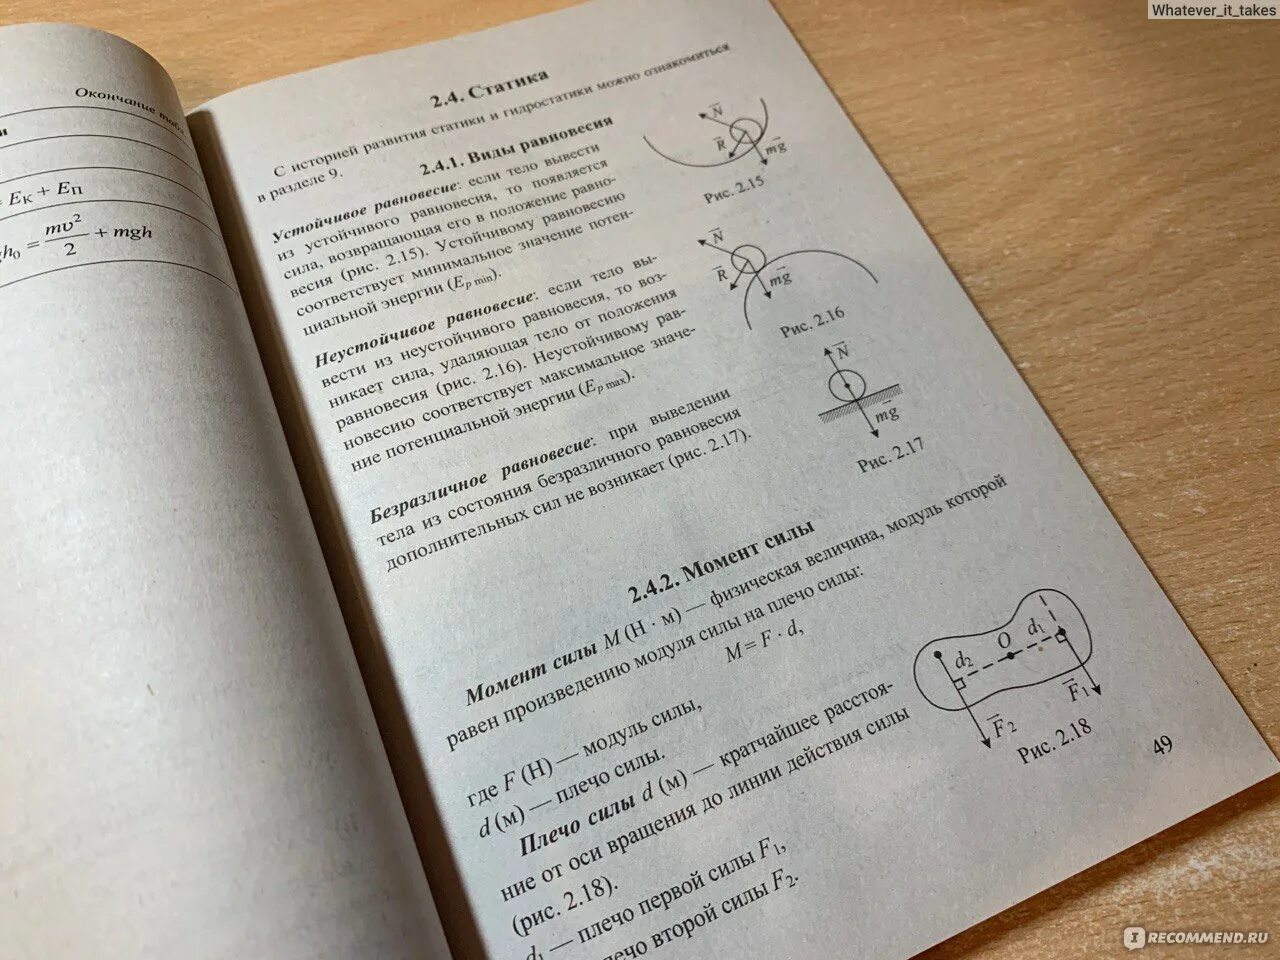 Whatever_it_takes
Окончание
и
= Eк + Eп
gh₀ = mυ²/2 + mgh
2.4. Статика
С историей развития статики и гидростатики можно ознакомиться
в разделе 9.
2.4.1. Виды равновесия
Устойчивое равновесие: если тело вывести
из устойчивого равновесия, то появляется
сила, возвращающая его в положение равно-
весия (рис. 2.15). Устойчивому равновесию
соответствует минимальное значение потен-
циальной энергии (Ep min).
N
R
mg
Рис. 2.15
Неустойчивое равновесие: если тело вы-
вести из неустойчивого равновесия, то воз-
никает сила, удаляющая тело от положения
равновесия (рис. 2.16). Неустойчивому рав-
новесию соответствует максимальное значе-
ние потенциальной энергии (Ep max).
N
R
mg
Рис. 2.16
Безразличное равновесие: при выведении
тела из состояния безразличного равновесия
дополнительных сил не возникает (рис. 2.17).
N
mg
Рис. 2.17
2.4.2. Момент силы
Момент силы M (Н · м) — физическая величина, модуль которой
равен произведению модуля силы на плечо силы:
M = F · d,
где F (Н) — модуль силы,
d (м) — плечо силы.
Плечо силы d (м) — кратчайшее расстоя-
ние от оси вращения до линии действия силы
(рис. 2.18).
d₁ — плечо первой силы F₁,
лечо второй силы F₂.
d₂
O
d₁
F₁
F₂
Рис. 2.18
49
RECOMMEND.RU